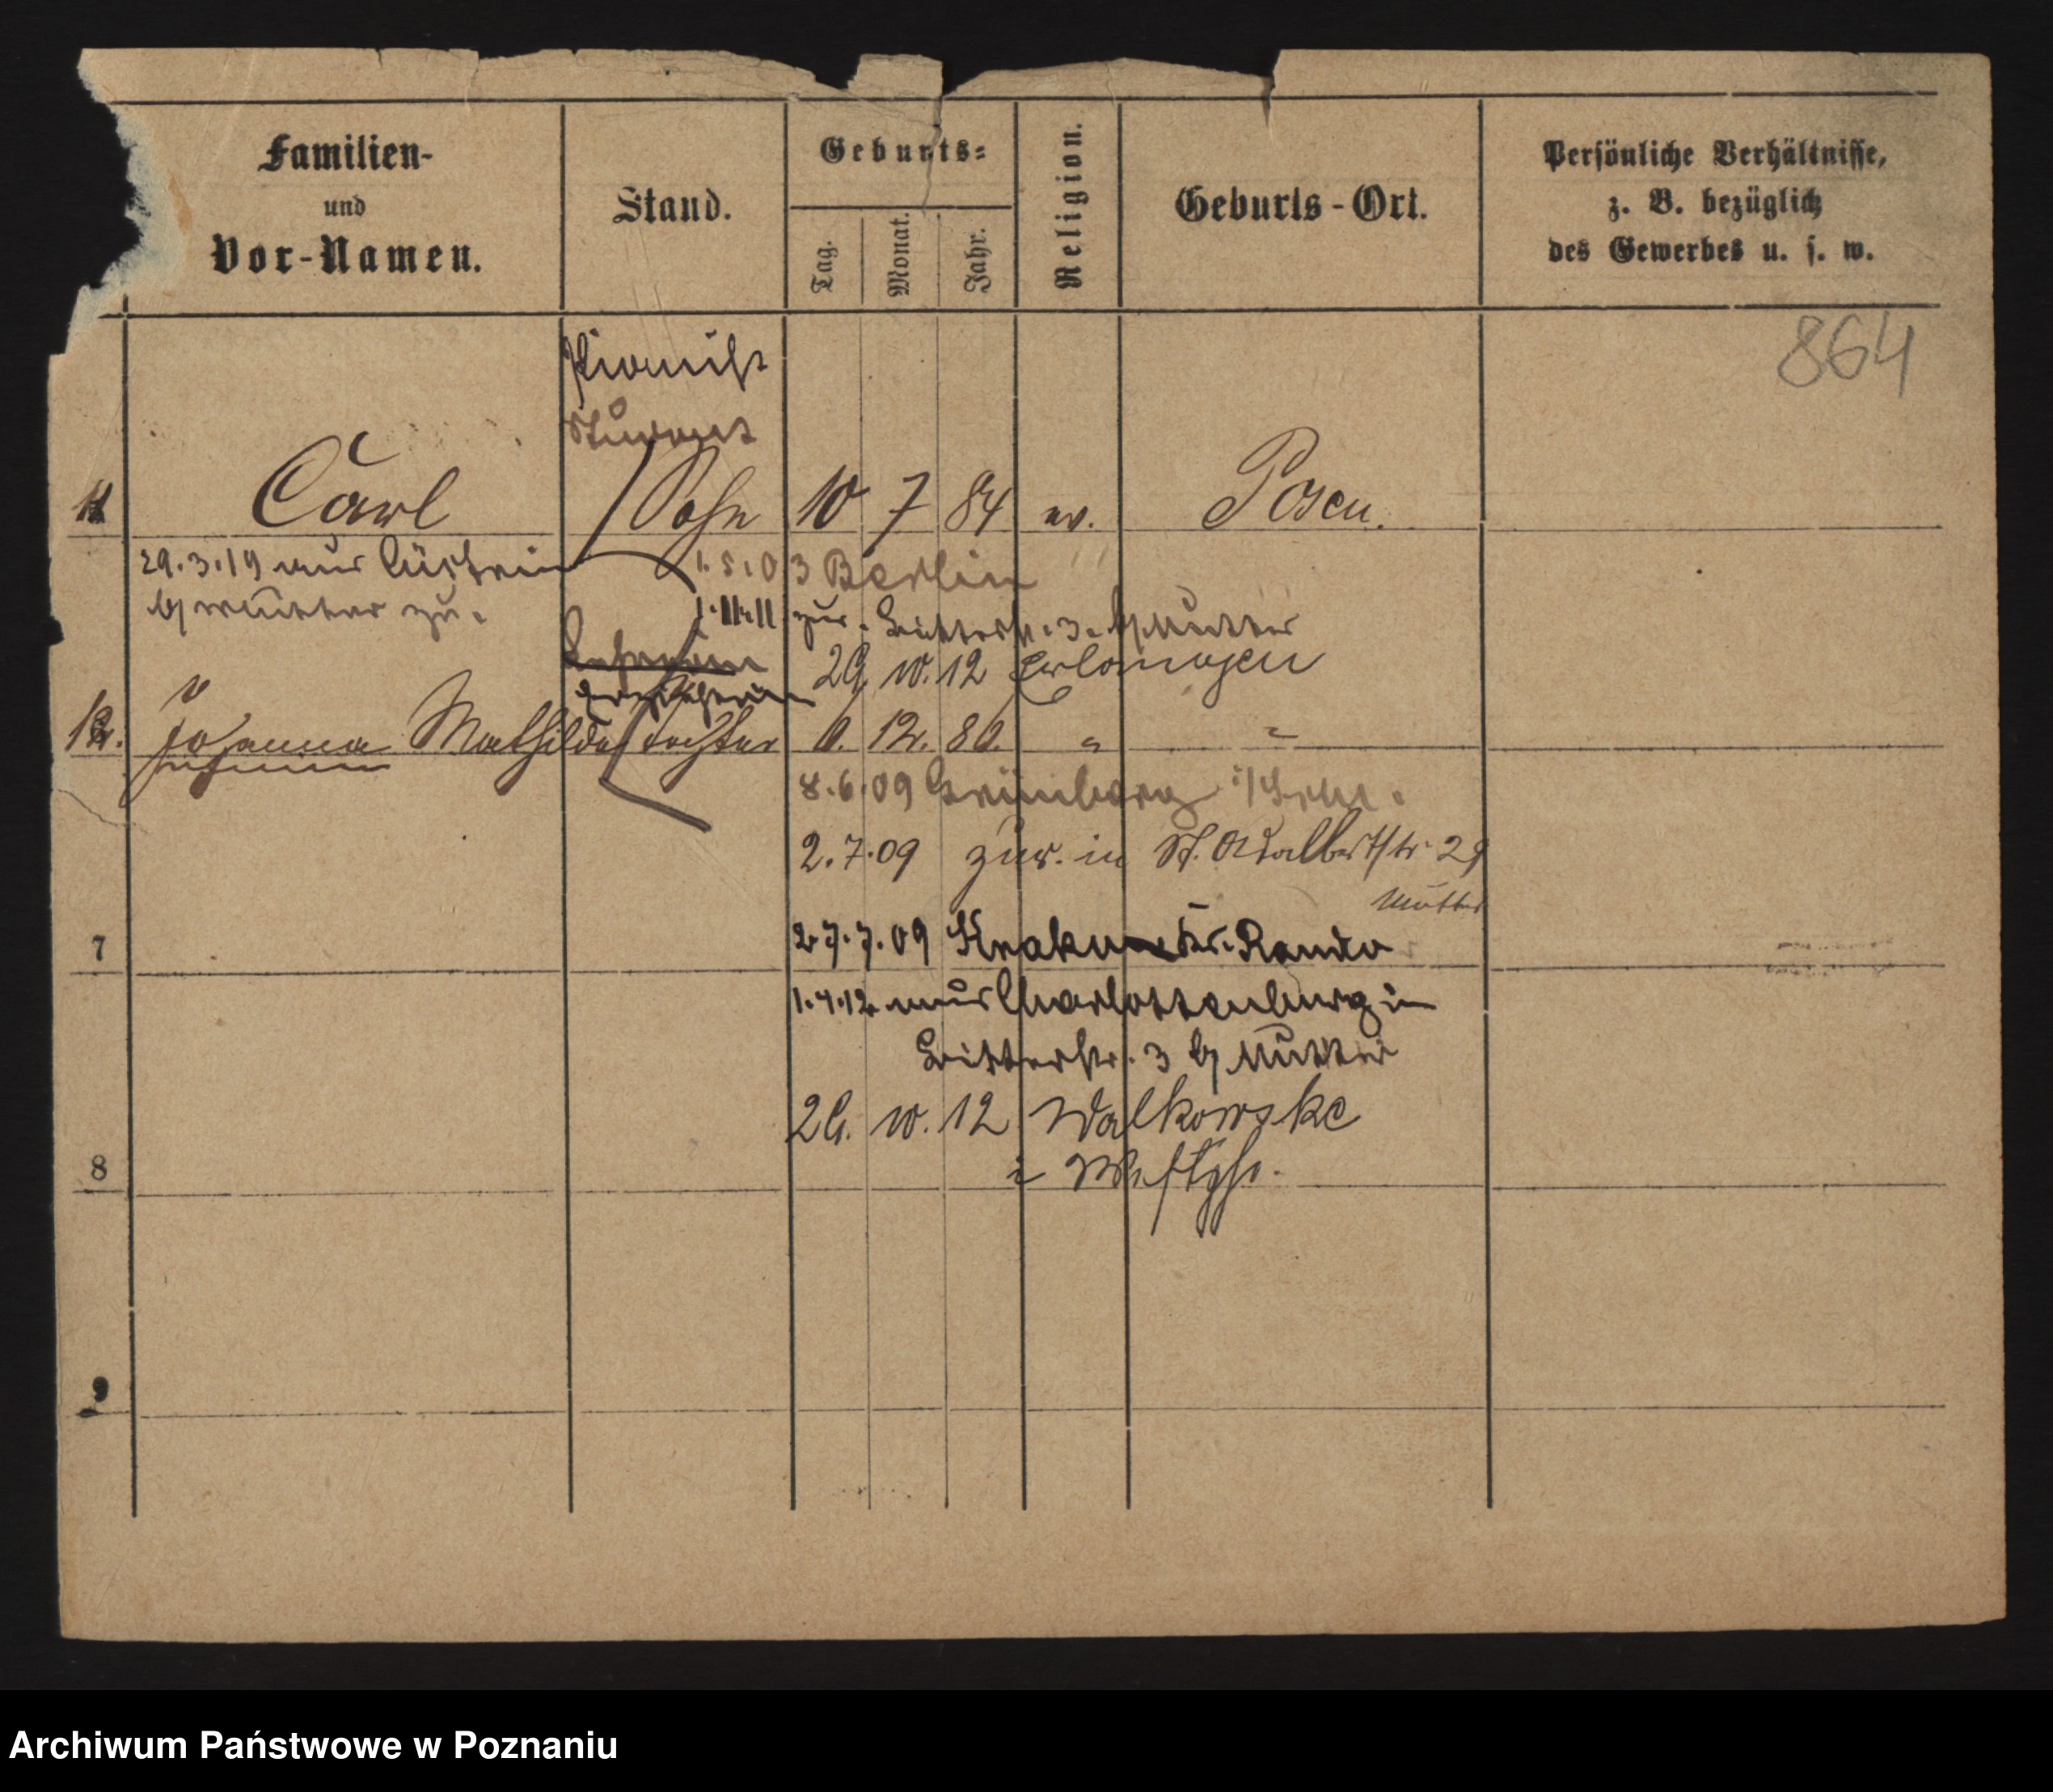 Familien-
und
Vor-Namen.
Stand.
Geburts-
Tag.
Monat.
Jahr.
Religion.
Geburts-Ort.
Persönliche Verhältnisse,
z. B. bezüglich
des Gewerbes u. s. w.
864
Pionier
Student
11 Carl Sohn 10 7 84 ev. Posen.
29.3.19 aus Cüstrin
b/ Mutter zu.
1.5.03 Berlin
zur. Ritterstr. 3. b/ Mutter
29 10. 12 Erlangen
Lehrerin
Erzieherin
12. Johanna Mathilde Tochter 6. 12. 80. " "
Johanna
8.6.09 Grünberg i/Schl.
2.7.09 zur. in St. Adalbertstr. 29
Mutter
7
27.7.09 Krakau
1.4.12 aus Charlottenburg in
Ritterstr. 3 b/ Mutter
26. 10. 12 Walkowske
i Westph.
8
9
Archiwum Państwowe w Poznaniu